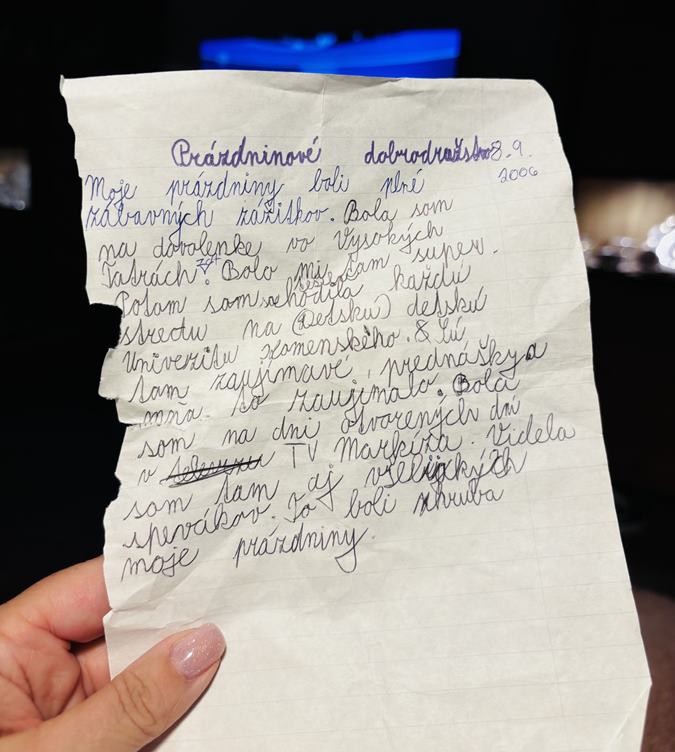 Prázdninové dobrodružstvo 8.9.
2006
Moje prázdniny boli plné
zábavných zážitkov. Bola som
na dovolenke vo Vysokých
Tatrách. Bolo mi tam super.
Potom som chodila každú
stredu na (Detskú) detskú
Univerzitu Komenského. Sú
tam zaujímavé prednášky a
mňa to zaujímalo. Bola
som na dni otvorených dní
v TV Markíza. Videla
som tam aj všelijakých
spevákov. To boli zhruba
moje prázdniny.